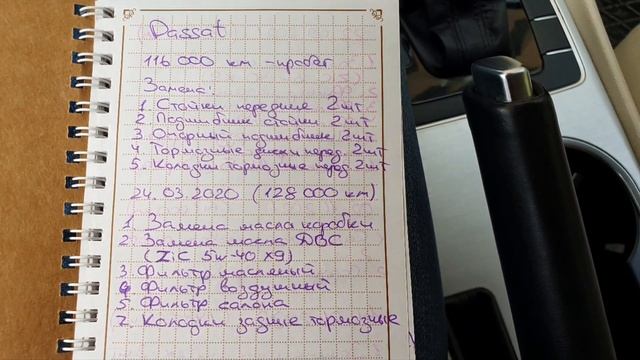 Passat
116 000 км - пробег
Замена:
1. Стойки передние 2шт
2. Подшибние стойки 2шт
3. Опорный подшибник 2шт
4 Тормозные диски перед. 2шт
5. Колодки тормозные перед. 2шт
24.03.2020 (128 000 км)
1. Замена масла коробки
2. Замена масла ДВС
(ZiC 5w-40 X9)
3. Фильтр масляный
4. Фильтр воздушный
5. Фильтр салона
7. Колодки задние тормозные